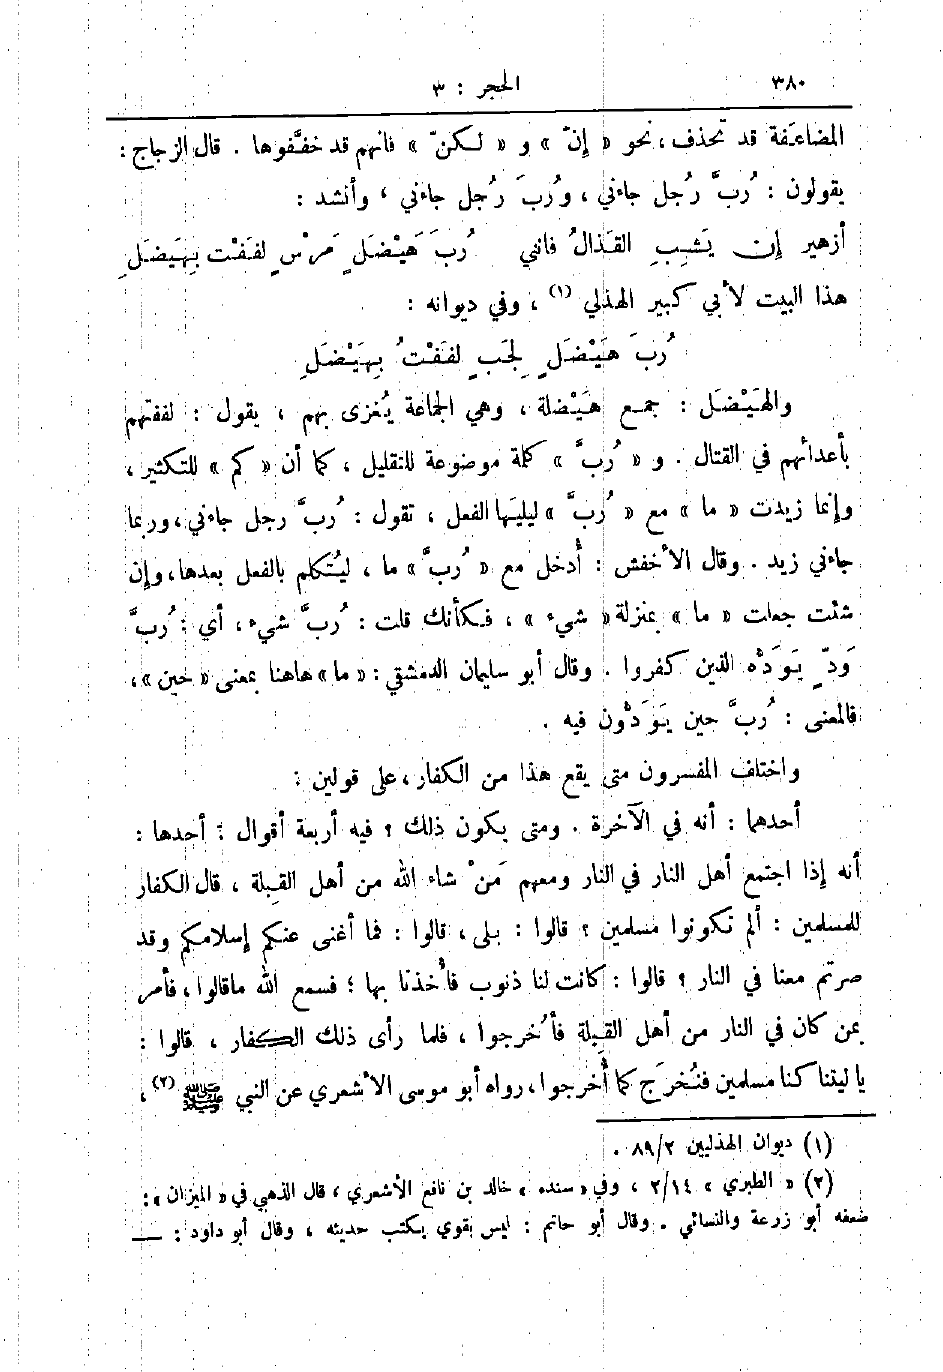 ٣٨٠ الحجر : ٣
المضاعَفة قد تحذف، نحو « إنّ » و « لكنّ » فانهم قد خفَّفوها . قال الزجاج :
يقولون : رُبَّ رُجل جاءني ، ورُبَ رُجل جاءني ، وأنشد :
أزهير إن يَشِبِ القَذالُ فانني رُبَ هَيْضَلٍ مَرسْ لفَفْت بِهَيضَلِ
هذا البيت لأبي كبير الهذلي (١) ، وفي ديوانه :
رُبَ هَيْضَلٍ لجَبٍ لففْتُ بِهَيْضَلِ
والهَيْضَل : جمع هَيْضلة ، وهي الجماعة يُغزى بهم ، يقول : لففتهم
بأعدائهم في القتال . و « رُبَّ » كلمة موضوعة للتقليل ، كما أن « كم » للتكثير ،
وإنما زيدت « ما » مع « رُبَّ » ليليَها الفعل ، تقول : رُبَّ رجل جاءني ، وربما
جاءني زيد . وقال الأخفش : أُدخل مع « رُبَّ » ما ، ليُتكلم بالفعل بعدها، وإن
شئت جعلت « ما » بمنزلة « شيء » ، فكأنك قلت : رُبَّ شيء ، أي : رُبَّ
وَدٍّ يَوَدُّه الذين كفروا . وقال أبو سليمان الدمشقي : « ما » هاهنا بمعنى « حين » ،
فالمعنى : رُبَّ حين يَوَدُّون فيه .
واختلف المفسرون متى يقع هذا من الكفار ، على قولين :
أحدهما : أنه في الآخرة . ومتى يكون ذلك ؟ فيه أربعة أقوال : أحدها :
أنه إذا اجتمع أهل النار في النار ومعهم مَنْ شاء الله من أهل القبلة ، قال الكفار
للمسلمين : ألم تكونوا مسلمين ؟ قالوا : بلى ، قالوا : فما أغنى عنكم إسلامكم وقد
صرتم معنا في النار ؟ قالوا : كانت لنا ذنوب فأُخذنا بها ؛ فسمع الله ماقالوا ، فأمر
بمن كان في النار من أهل القِبلة فأُخرجوا ، فلما رأى ذلك الكفار ، قالوا :
يا ليتنا كنا مسلمين فنُخرَج كما أُخرجوا ، رواه أبو موسى الأشعري عن النبي ﷺ (٢) ،
(١) ديوان الهذليين ٨٩/٢ .
(٢) « الطبري » ٢/١٤ ، وفي « سنده » خالد بن نافع الأشعري ، قال الذهبي في « الميزان » :
ضعفه أبو زرعة والنسائي . وقال أبو حاتم : ليس بقوي يكتب حديثه ، وقال أبو داود : —